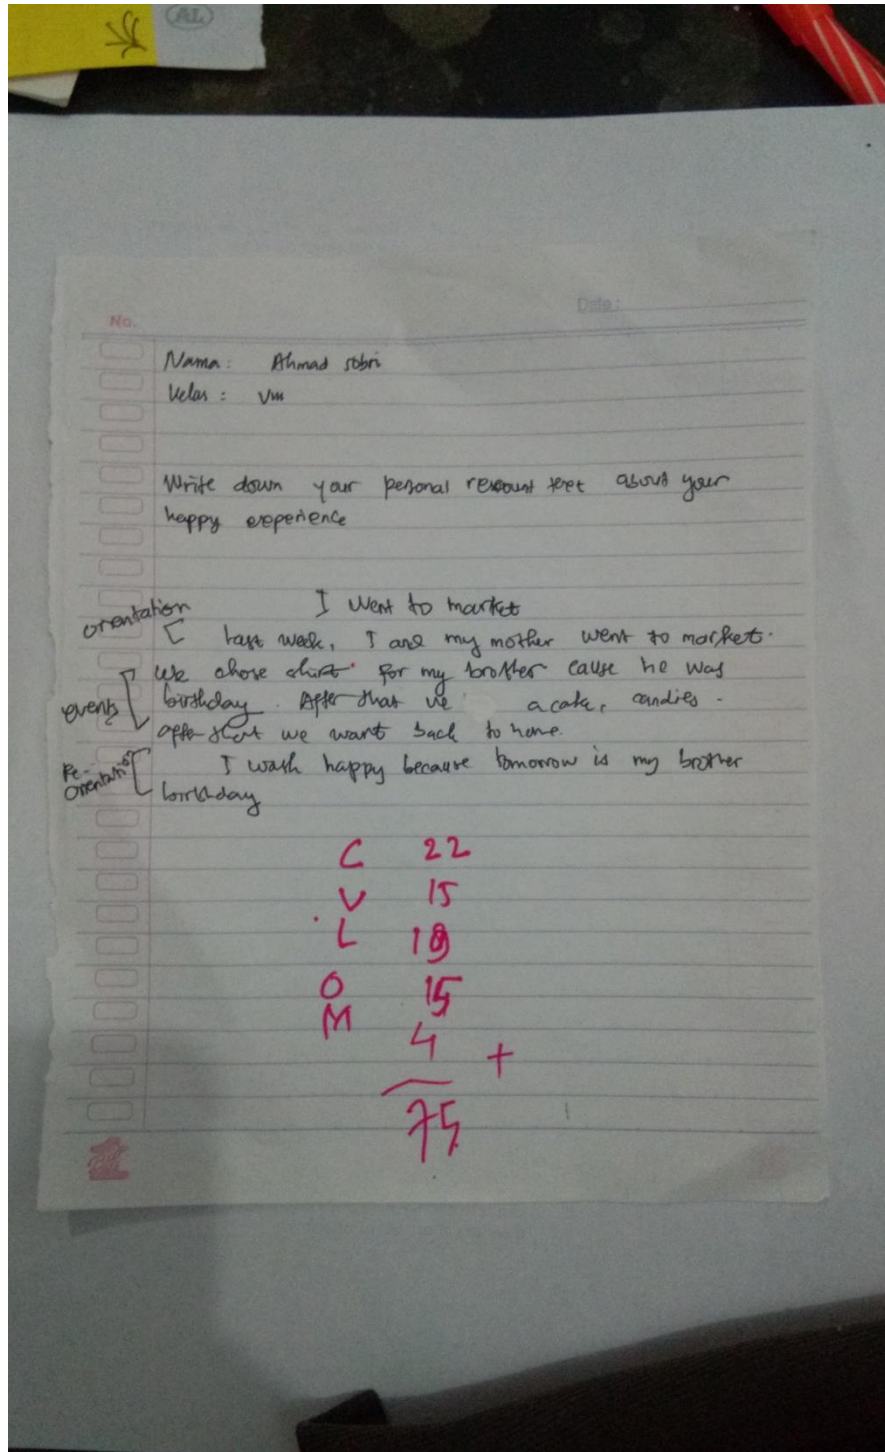 AL
No.
Date:
Nama: Ahmad sobri
Kelas: VIII
Write down your personal recount text about your
happy experience
I went to market
orientation
Last week, I and my mother went to market.
We chose shirt for my brother cause he was
birthday. After that we a cake, candies.
events
after that we want back to home.
I wash happy because tomorrow is my brother
Re-
Orientation
birthday
C 22
V 15
L 19
O 15
M 4 +
75